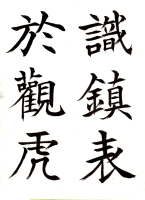 識鎮表
於觀虎